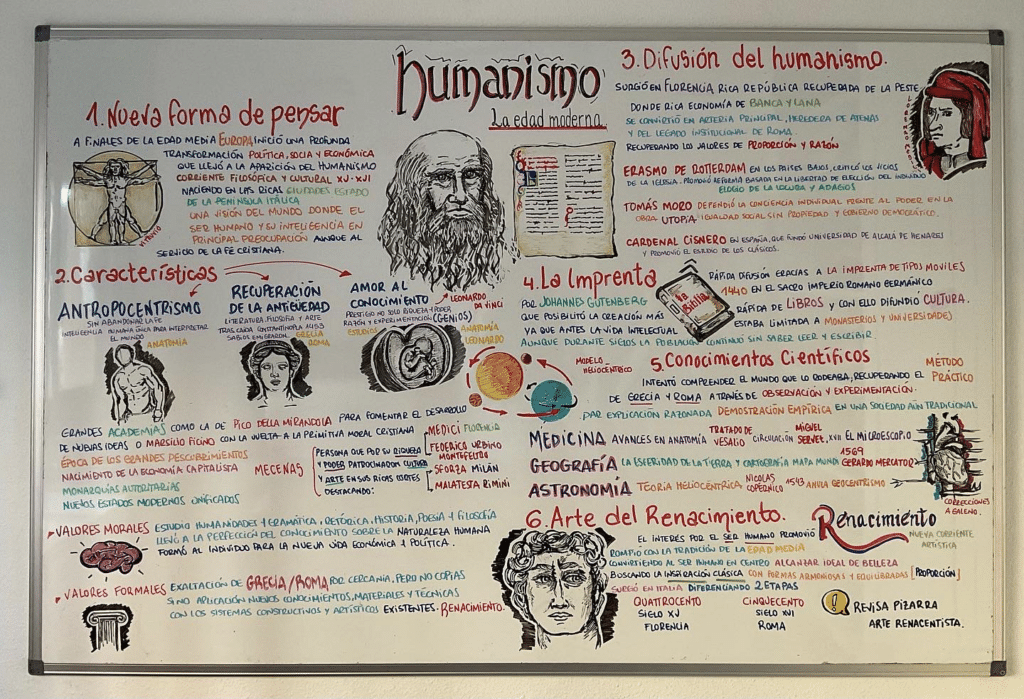 humanismo
La edad moderna
1. Nueva forma de pensar
A FINALES DE LA EDAD MEDIA EUROPA INICIÓ UNA PROFUNDA
TRANSFORMACIÓN POLÍTICA, SOCIA Y ECONÓMICA
QUE LLEVÓ A LA APARICIÓN DEL HUMANISMO
CORRIENTE FILOSÓFICA Y CULTURAL XV-XVI
NACIENDO EN LAS RICAS CIUDADES ESTADO
DE LA PENÍNSULA ITÁLICA
UNA VISIÓN DEL MUNDO DONDE EL
SER HUMANO Y SU INTELIGENCIA EN
PRINCIPAL PREOCUPACIÓN AUNQUE AL
SERVICIO DE LA FE CRISTIANA.
VITRUVIO
2. Características
ANTROPOCENTRISMO
SIN ABANDONAR LA FE
INTELIGENCIA HUMANA ÚNICA PARA INTERPRETAR
EL MUNDO
ANATOMÍA
RECUPERACIÓN
DE LA ANTIGÜEDAD
LITERATURA, FILOSOFÍA Y ARTE
TRAS CAIDA CONSTANTINOPLA 1453
SABIOS EMIGRARON
GRECIA
ROMA
AMOR AL
CONOCIMIENTO
PRESTIGIO NO SOLO RIQUEZA Y PODER
RAZÓN Y EXPERIMENTACIÓN (GENIOS)
LEONARDO
DA VINCI
ESTUDIOS
ANATOMÍA
LEONARDO
GRANDES ACADEMIAS COMO LA DE PICO DELLA MIRANDOLA PARA FOMENTAR EL DESARROLLO
DE NUEVAS IDEAS O MARSILIO FICINO CON LA VUELTA A LA PRIMITIVA MORAL CRISTIANA
ÉPOCA DE LOS GRANDES DESCUBRIMIENTOS
NACIMIENTO DE LA ECONOMÍA CAPITALISTA
MONARQUÍAS AUTORITARIAS
NUEVOS ESTADOS MODERNOS UNIFICADOS
MECENAS
PERSONA QUE POR SU RIQUEZA
Y PODER PATROCINADOR CULTURA
Y ARTE EN SUS RICAS CORTES
DESTACANDO:
MEDICI FLORENCIA
FEDERICO URBINO
MONTEFELTRO
SFORZA MILÁN
MALATESTA RIMINI
VALORES MORALES ESTUDIO HUMANIDADES + GRAMATICA, RETÓRICA, HISTORIA, POESIA Y FILOSOFÍA
LLEVÓ A LA PERFECCIÓN DEL CONOCIMIENTO SOBRE LA NATURALEZA HUMANA
FORMÓ AL INDIVIDUO PARA LA NUEVA VIDA ECONÓMICA Y POLÍTICA.
VALORES FORMALES EXALTACIÓN DE GRECIA/ROMA POR CERCANIA, PERO NO COPIAS
SINO APLICACIÓN NUEVOS CONOCIMIENTOS, MATERIALES Y TÉCNICAS
CON LOS SISTEMAS CONSTRUCTIVOS Y ARTÍSTICOS EXISTENTES. RENACIMIENTO.
3. Difusión del humanismo.
SURGIÓ EN FLORENCIA, RICA REPÚBLICA RECUPERADA DE LA PESTE
DONDE RICA ECONOMÍA DE BANCA Y LANA
SE CONVIRTIÓ EN ARTERIA PRINCIPAL, HEREDERA DE ATENAS
Y DEL LEGADO INSTITUCIONAL DE ROMA.
RECUPERANDO LOS VALORES DE PROPORCIÓN Y RAZÓN
ERASMO DE ROTTERDAM EN LOS PAÍSES BAJOS, CRITICÓ LOS VICIOS
DE LA IGLESIA. PROMOVIÓ REFORMA BASADA EN LA LIBERTAD DE ELECCIÓN DEL INDIVIDUO
ELOGIO DE LA LOCURA Y ADAGIOS
TOMÁS MORO DEFENDIÓ LA CONCIENCIA INDIVIDUAL FRENTE AL PODER EN LA
OBRA UTOPÍA. IGUALDAD SOCIAL SIN PROPIEDAD Y GOBIERNO DEMOCRÁTICO.
CARDENAL CISNERO EN ESPAÑA, QUE FUNDÓ UNIVERSIDAD DE ALCALÁ DE HENARES
Y PROMOVIÓ EL ESTUDIO DE LOS CLÁSICOS.
4. La Imprenta
POR JOHANNES GUTENBERG
QUE POSIBILITÓ LA CREACIÓN MÁS
la Biblia
RÁPIDA DIFUSIÓN GRACIAS A LA IMPRENTA DE TIPOS MOVILES
1440 EN EL SACRO IMPERIO ROMANO GERMÁNICO
RÁPIDA DE LIBROS Y CON ELLO DIFUNDIÓ CULTURA.
YA QUE ANTES LA VIDA INTELECTUAL ESTABA LIMITADA A MONASTERIOS Y UNIVERSIDADES
AUNQUE DURANTE SIGLOS LA POBLACIÓN CONTINUÓ SIN SABER LEER Y ESCRIBIR
MODELO
HELIOCÉNTRICO
5. Conocimientos Científicos
MÉTODO
PRÁCTICO
INTENTÓ COMPRENDER EL MUNDO QUE LO RODEABA, RECUPERANDO EL
DE GRECIA Y ROMA A TRAVÉS DE OBSERVACIÓN Y EXPERIMENTACIÓN.
DAR EXPLICACIÓN RAZONADA DEMOSTRACIÓN EMPÍRICA EN UNA SOCIEDAD AÚN TRADICIONAL
MEDICINA AVANCES EN ANATOMÍA TRATADO DE VESALIO CIRCULACIÓN MIGUEL SERVET, XVII EL MICROSCOPIO
GEOGRAFÍA LA ESFERIDAD DE LA TIERRA Y CARTOGRAFÍA MAPA MUNDI 1569 GERARDO MERCATOR
ASTRONOMÍA TEORÍA HELIOCÉNTRICA NICOLAS COPÉRNICO 1543 ANULA GEOCENTRISMO
CORRECCIONES
A GALENO.
6. Arte del Renacimiento.
Renacimiento
NUEVA CORRIENTE
ARTÍSTICA
EL INTERÉS POR EL SER HUMANO PROMOVIÓ
ROMPIO CON LA TRADICIÓN DE LA EDAD MEDIA
CONVIRTIENDO AL SER HUMANO EN CENTRO ALCANZAR IDEAL DE BELLEZA
BUSCANDO LA INSPIRACIÓN CLÁSICA CON FORMAS ARMONIOSAS Y EQUILIBRADAS [PROPORCIÓN]
SURGIÓ EN ITALIA DIFERENCIANDO 2 ETAPAS
QUATTROCENTO
SIGLO XV
FLORENCIA
CINQUECENTO
SIGLO XVI
ROMA
REVISA PIZARRA
ARTE RENACENTISTA.